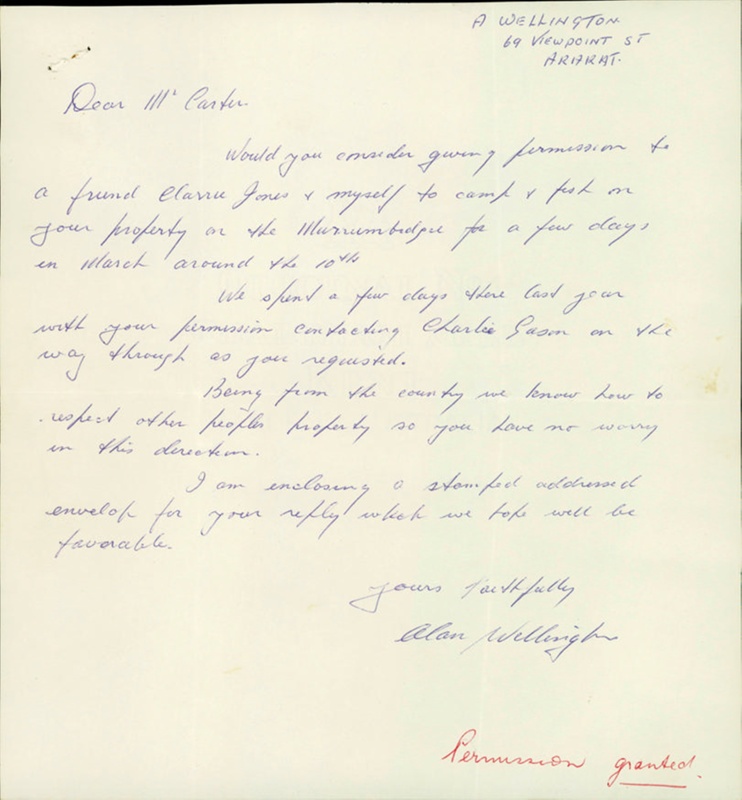 A WELLINGTON
69 VIEWPOINT ST
ARARAT.
Dear Mr Carter.
Would you consider giving permission to
a friend Clarrie Jones & myself to camp & fish on
your property on the Murrumbidgee for a few days
in March around the 10th
We spent a few days there last year
with your permission contacting Charlie Gason on the
way through as you requested.
Being from the country we know how to
respect other peoples property so you have no worry
in this direction.
I am enclosing a stamped addressed
envelop for your reply which we hope will be
favorable.
Yours Faithfully
Alan Wellington
Permission granted.